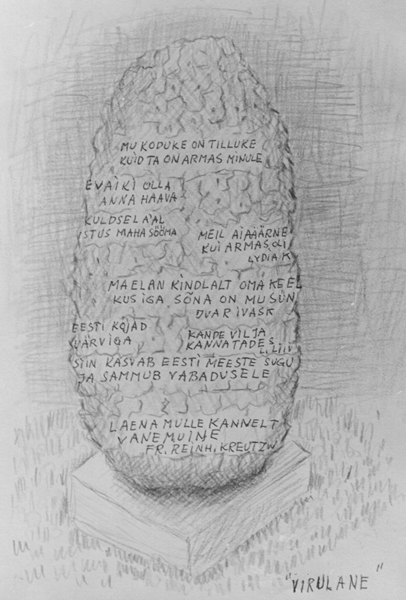 MU KODUKE ON TILLUKE
KUID TA ON ARMAS MINULE
EVAIKI OLLA
ANNA HAAVA
KULDSEL AAL
ISTUS MAHA SÖÖMA
MEIL AIAÄÄRNE
KUI ARMAS OLI
LYDIA K
MA ELAN KINDLALT OMA KEEL
KUS IGA SÕNA ON MU SÜN
IVAR IVASK
EESTI KOJAD
VÄRVIGA
KANDE VILJA
KANNATADES
L. LIIV
SIIN KASVAB EESTI MEESTE SUGU
JA SAMMUB VABADUSELE
LAENA MULLE KANNELT
VANEMUINE
FR. REINH. KREUTZW
"VIRULANE"